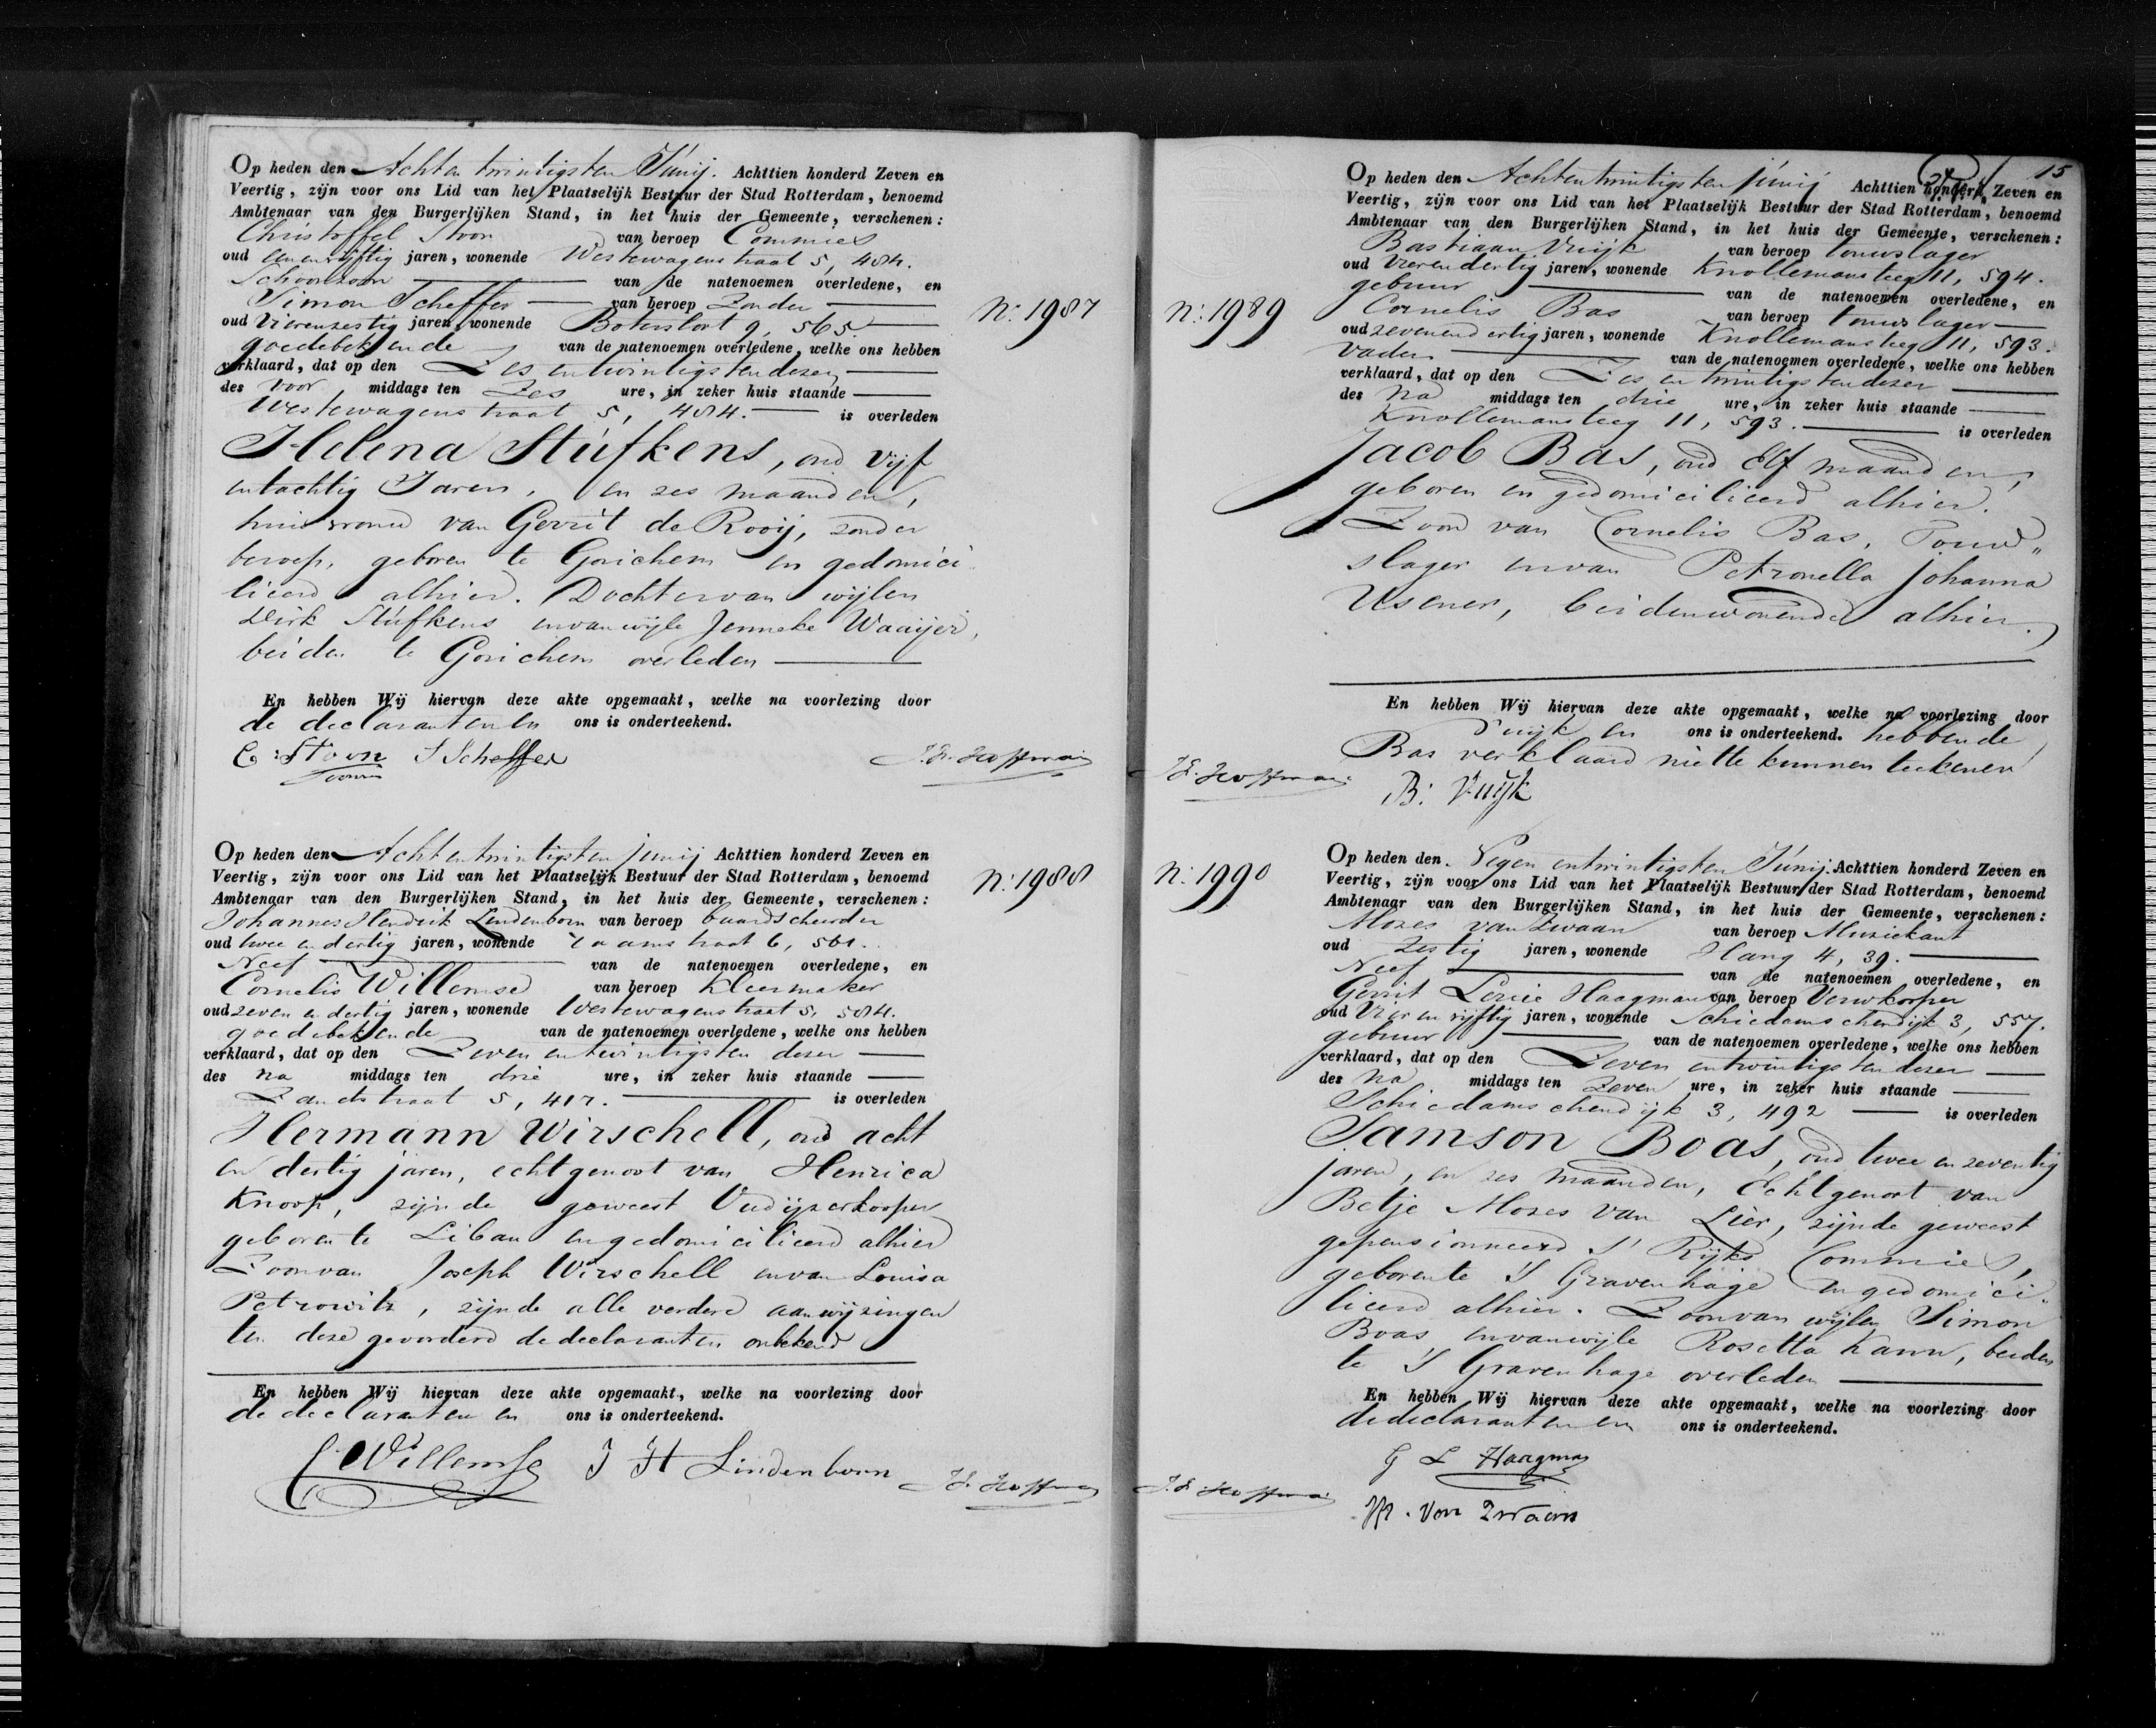 Op heden den Achten twintigsten Junij. Achttien honderd Zeven en
Veertig, zijn voor ons Lid van het Plaatselijk Bestuur der Stad Rotterdam, benoemd
Ambtenaar van den Burgerlijken Stand, in het huis der Gemeente, verschenen:
Christoffel Stoon van beroep Commies
oud eenenvijftig jaren, wonende Westewagenstraat 5, 484.
Schoonzoon van de natenoemen overledene, en
Simon Scheffer van beroep Zonder
oud Vierenzestig jaren, wonende Botersloot 9, 565
goedebekende van de natenoemen overledene, welke ons hebben
verklaard, dat op den Zes entwintigsten dezer
des voor middags ten Zes ure, in zeker huis staande
Westewagenstraat 5, 484. is overleden
Helena Stúfkens, oud Vijf
entachtig Jaren, en zes maanden,
huisvrouw van Gerrit de Rooij, zonder
beroep, geboren te Gorichem en gedomici
lieerd alhier. Dochter van wijlen
Dirk Stúfkens en van wijle Jenneke Waaijer,
beiden te Gorichem overleden
En hebben Wij hiervan deze akte opgemaakt, welke na voorlezing door
de declaranten en ons is onderteekend.
C: Stoon S Scheffer
N: 1987
Op heden den Achtentwintigsten junij Achttien honderd Zeven en
Veertig, zijn voor ons Lid van het Plaatselijk Bestuur der Stad Rotterdam, benoemd
Ambtenaar van den Burgerlijken Stand, in het huis der Gemeente, verschenen:
Johannes Hendrik Lindenborn van beroep baardscheerder
oud twee en dertig jaren, wonende Raamstraat 6, 561.
Neef van de natenoemen overledene, en
Cornelis Willemse van beroep Kleermaker
oud zeven en dertig jaren, wonende Westewagenstraat 5, 584.
goedebekende van de natenoemen overledene, welke ons hebben
verklaard, dat op den Zeven entwintigsten dezer
des na middags ten drie ure, in zeker huis staande
Zandstraat 5, 417. is overleden
Hermann Wirschell, oud acht
en dertig jaren, echtgenoot van Henrica
Knoop, zijnde geweest Oudijzerkooper
geboren te Libau en gedomicilieerd alhier
Zoon van Joseph Wirschell en van Louisa
Petrowitz, zijnde alle verdere aanwijzingen
ten deze gevorderd de declaranten onbekend
En hebben Wij hiervan deze akte opgemaakt, welke na voorlezing door
de declaranten en ons is onderteekend.
C Willemse J H Lindenborn
N: 1988
15
Op heden den Achtentwintigsten junij Achttien honderd Zeven en
Veertig, zijn voor ons Lid van het Plaatselijk Bestuur der Stad Rotterdam, benoemd
Ambtenaar van den Burgerlijken Stand, in het huis der Gemeente, verschenen:
Bastiaan Vuijk van beroep touwslager
oud Vierendertig jaren, wonende Knollemansteeg 11, 594.
gebuur van de natenoemen overledene, en
Cornelis Bas van beroep touwslager
oud zevenendertig jaren, wonende Knollemansteeg 11, 593.
Vader van de natenoemen overledene, welke ons hebben
verklaard, dat op den Zes en twintigsten dezer
des na middags ten drie ure, in zeker huis staande
Knollemansteeg 11, 593. is overleden
Jacob Bas, oud Elf maanden,
geboren en gedomicilieerd alhier.
Zoon van Cornelis Bas, Touw„
slager en van Petronella Johanna
Usener, beiden wonende alhier.
En hebben Wij hiervan deze akte opgemaakt, welke na voorlezing door
Vuijk en ons is onderteekend. hebbende
Bas verklaard niet te kunnen teekenen
B: Vuijk
N: 1989
Op heden den Negen entwintigsten Júnij. Achttien honderd Zeven en
Veertig, zijn voor ons Lid van het Plaatselijk Bestuur der Stad Rotterdam, benoemd
Ambtenaar van den Burgerlijken Stand, in het huis der Gemeente, verschenen:
Mozes van Zwaan van beroep Muziekant
oud Zestig jaren, wonende Hang 4, 39.
Neef van de natenoemen overledene, en
Gerrit Haagman van beroep Verwkooper
oud Vier en vijftig jaren, wonende Schiedamschendijk 3, 557.
gebuur van de natenoemen overledene, welke ons hebben
verklaard, dat op den Zeven entwintigsten dezer
des na middags ten Zeven ure, in zeker huis staande
Schiedamschendijk 3, 492 is overleden
Samson Boas, oud twee en zeventig
jaren, en zes maanden, Echtgenoot van
Betje Mozes van Lier, zijnde geweest
gepensionneerd S' Rijks Commies,
geboren te S' Gravenhage en gedomici„
lieerd alhier. Zoon van wijlen Simon
Boas, en van wijle Rosetta Kann, beiden
te S' Gravenhage overleden
En hebben Wij hiervan deze akte opgemaakt, welke na voorlezing door
de declaranten en ons is onderteekend.
G L Haagman
M. Van Zwaan
N: 1990